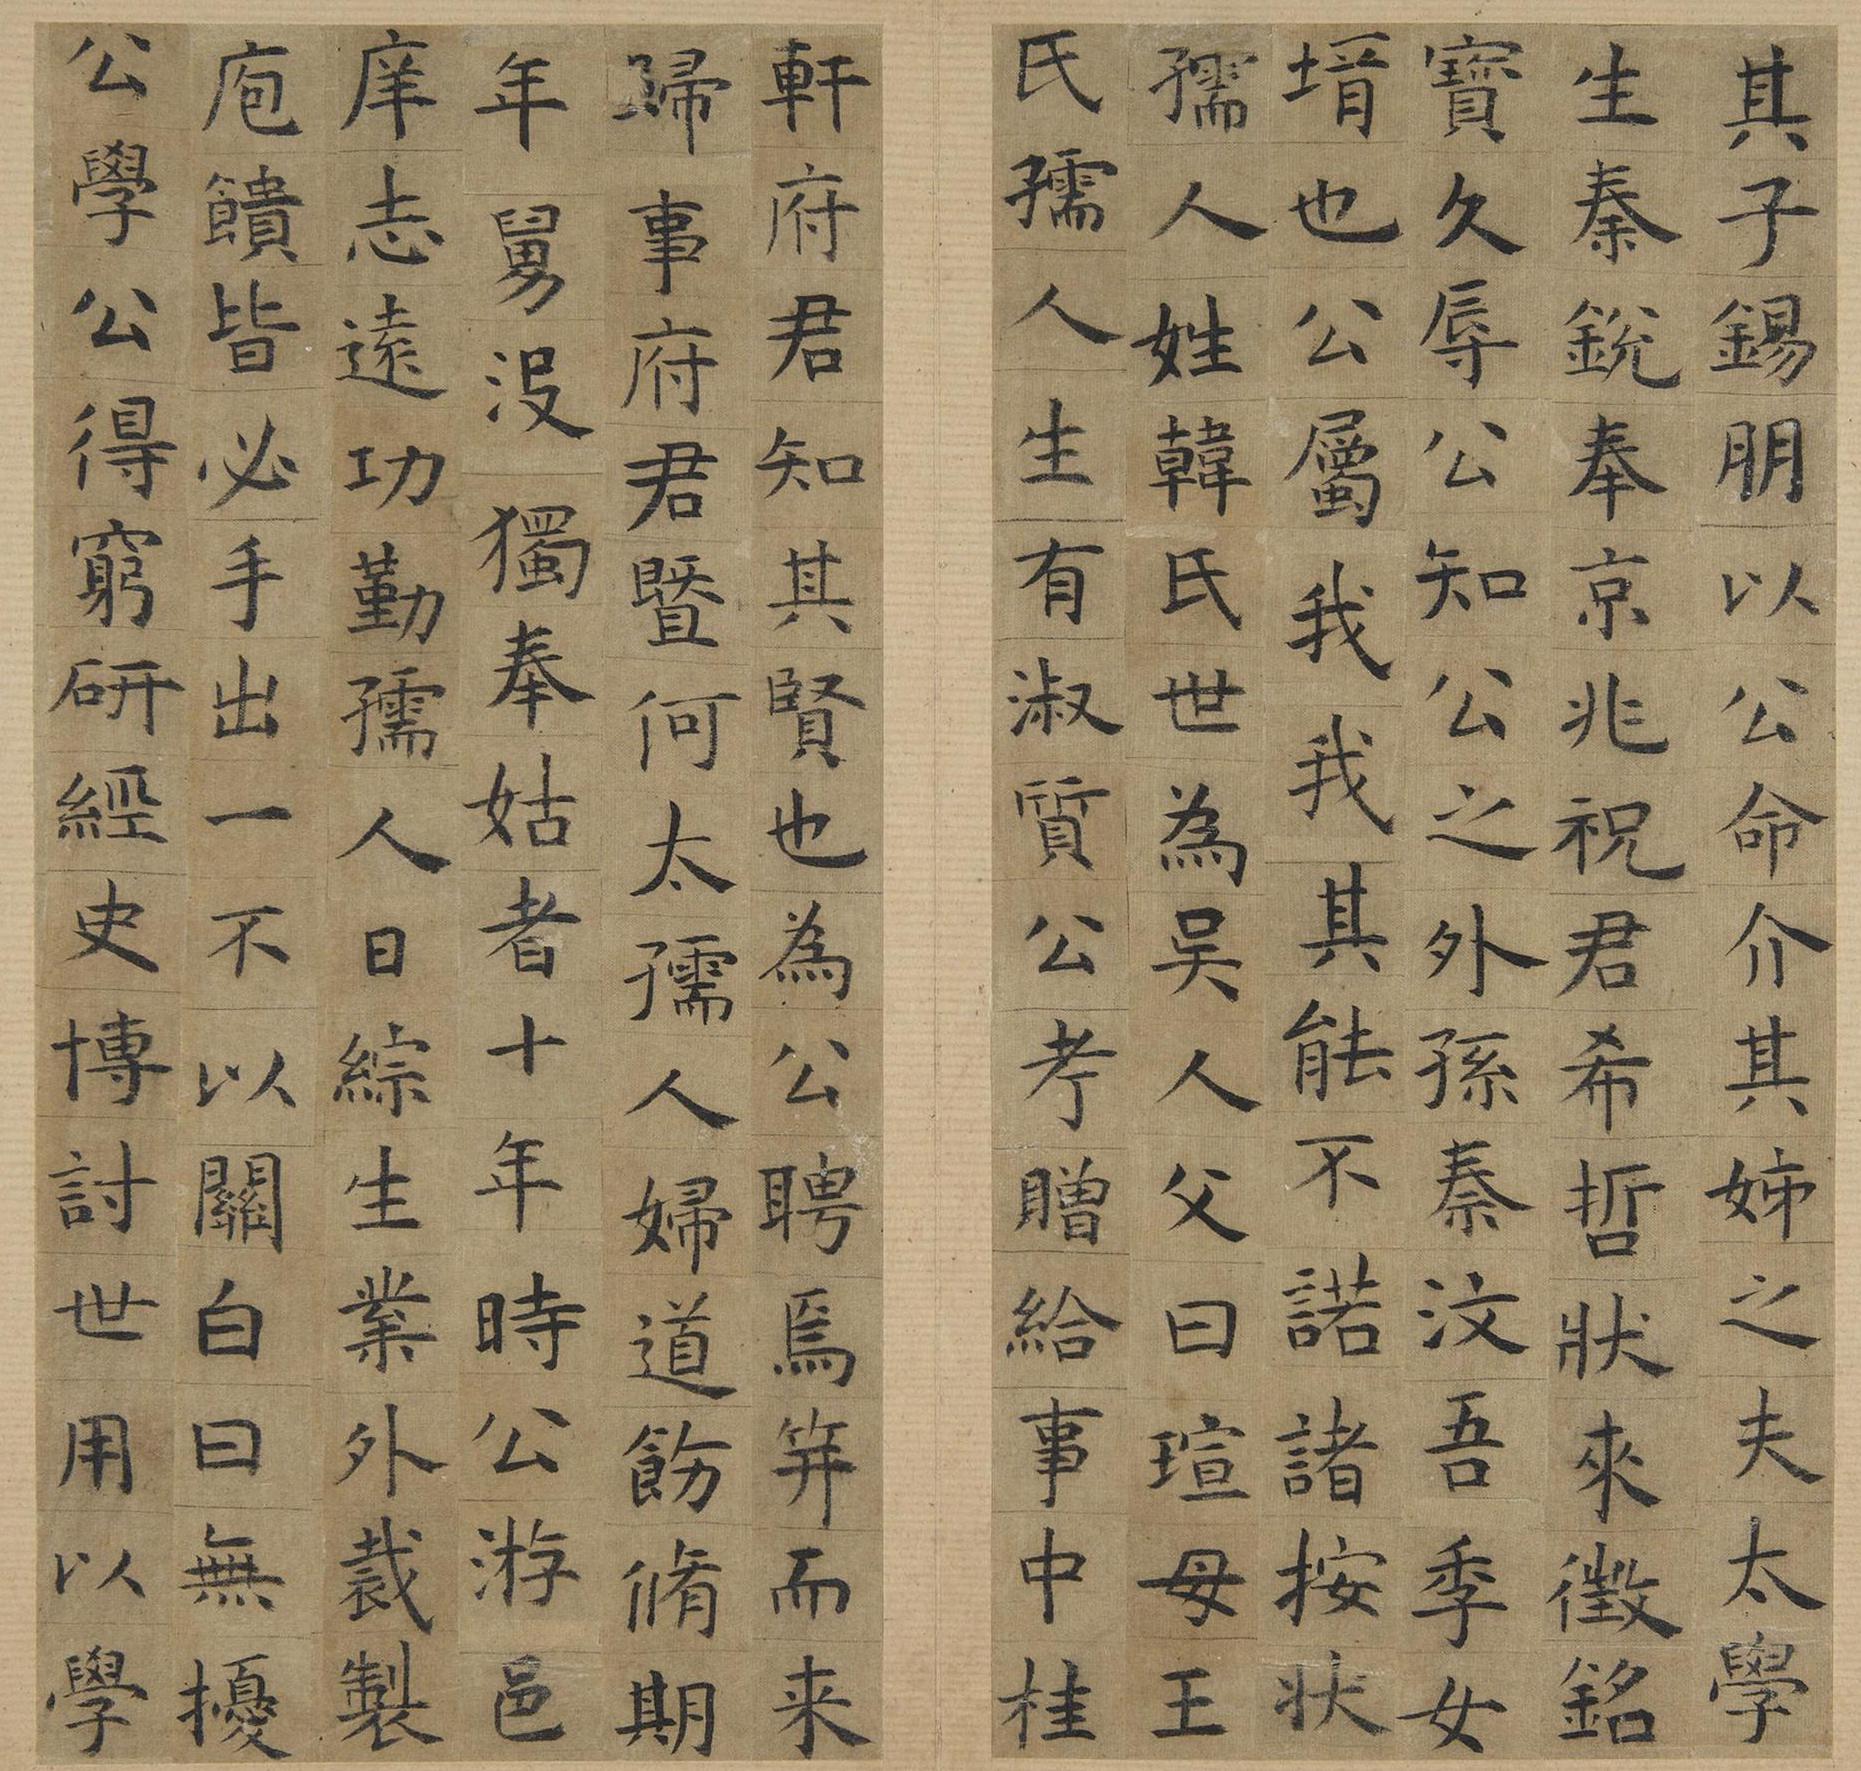 其子錫朋以公命介其姊之夫太學
生秦銳奉京兆祝君希哲狀來徵銘
寶久辱公知公之外孫秦汶吾季女
壻也公屬我我其能不諾諸按狀
孺人姓韓氏世為吴人父曰瑄母王
氏孺人生有淑質公考贈給事中桂
軒府君知其賢也為公聘焉笄而来
歸事府君暨何太孺人婦道飭脩期
年舅没獨奉姑者十年時公游邑
庠志遠功勤孺人日綜生業外裁製
庖饋皆必手出一不以關白曰無擾
公學公得窮研經史博討世用以學